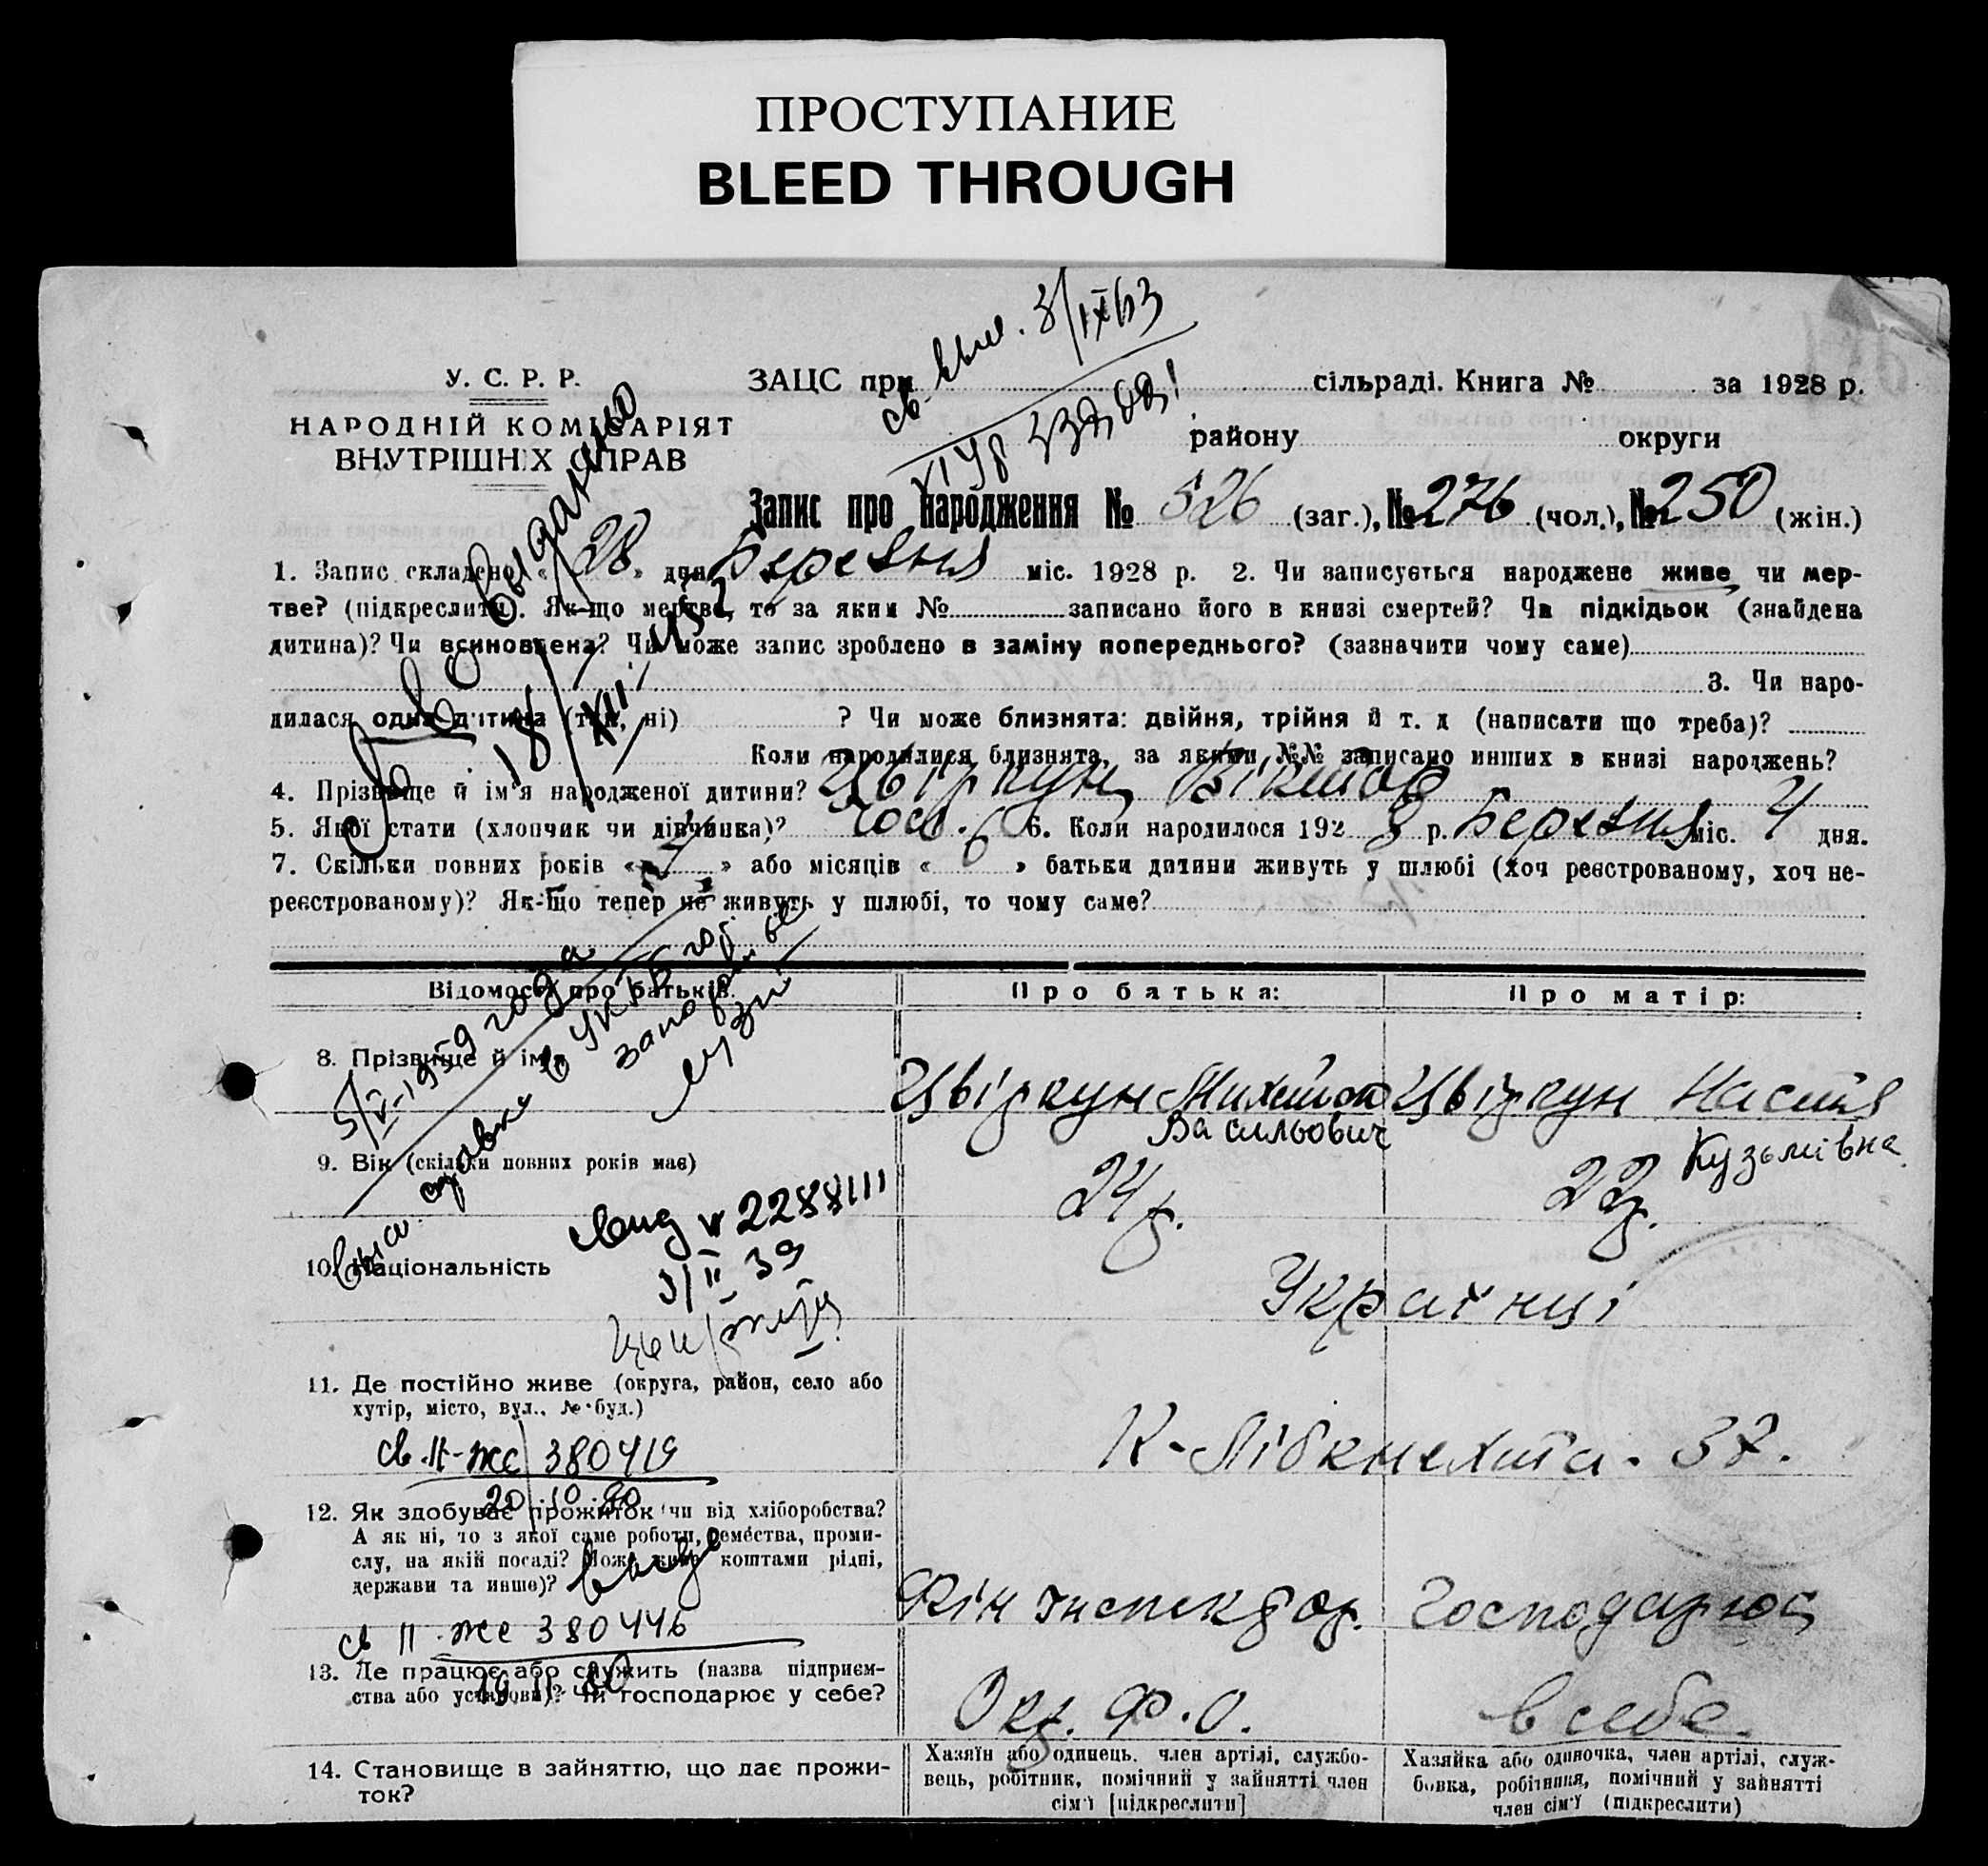 ПРОСТУПАНИЕ
BLEED THROUGH
св. выл. 3/IX 63
У. С. Р. Р.
ЗАЦС при сільраді. Книга № за 1928 р.
НАРОДНІЙ КОМІСАРІЯТ
ВНУТРІШНІХ СПРАВ
району округи
Запис про народження № 526 (заг.), № 276 (чол.), № 250 (жін.)
1. Запис складено „ 28 " дня Березня міс. 1928 р. 2. Чи записується народжене живе чи мер-
тве? (підкреслити). Як-що мертве, то за яким № записано його в книзі смертей? Чи підкідьок (знайдена
дитина)? Чи всиновлена? Чи може запис зроблено в заміну попереднього? (зазначити чому саме)
3. Чи наро-
дилася одна дитина (так, ні) ? Чи може близнята: двійня, трійня й т. д (написати що треба)?
Коли народилися близнята, за якими №№ записано инших в книзі народжень?
4. Прізвище й ім'я народженої дитини? Цвіркун Віктор
5. Якої стати (хлопчик чи дівчинка)? чол. 6. Коли народилося 1928 р. Березня міс. 4 дня.
7. Скільки повних років « » або місяців « 6 » батьки дитини живуть у шлюбі (хоч реєстрованому, хоч не-
реєстрованому)? Як-що тепер не живуть у шлюбі, то чому саме?
св-во выдано
18/XII
Відомості про батьків. Про батька: Про матір:
5/V-1959 года
выд. справка в УКГБ
8. Прізвище й ім'я Цвіркун Михайло Васильович Цвіркун Настя Кузьмівна
9. Вік (скільки повних років має) 24 р. 22 р.
свид № 2288111
3/II 39
10. Національність Українці
11. Де постійно живе (округа, район, село або
хутір, місто, вул., № буд.) К-Лібкнехта - 37.
св. II-ЖС 380419
20.10.80
12. Як здобуває прожиток чи від хліборобства?
А як ні, то з якої саме роботи, ремества, проми-
слу, на якій посаді? Може живе коштами рідні,
держави та инше)? Фін Інспектор. Господарює
св II-ЖС 380446
19.11.80
13. Де працює або служить (назва підприєм-
ства або установи)? Чи господарює у себе? Окр. Ф. О. в себе.
14. Становище в зайняттю, що дає прожи-
ток?
Хазяїн або одинець, член артілі, службо-
вець, робітник, помічний у зайнятті член
сім'ї [підкреслити]
Хазяйка або одиночка, член артілі, служ-
бовка, робітниця, помічний у зайнятті
член сім'ї (підкреслити)